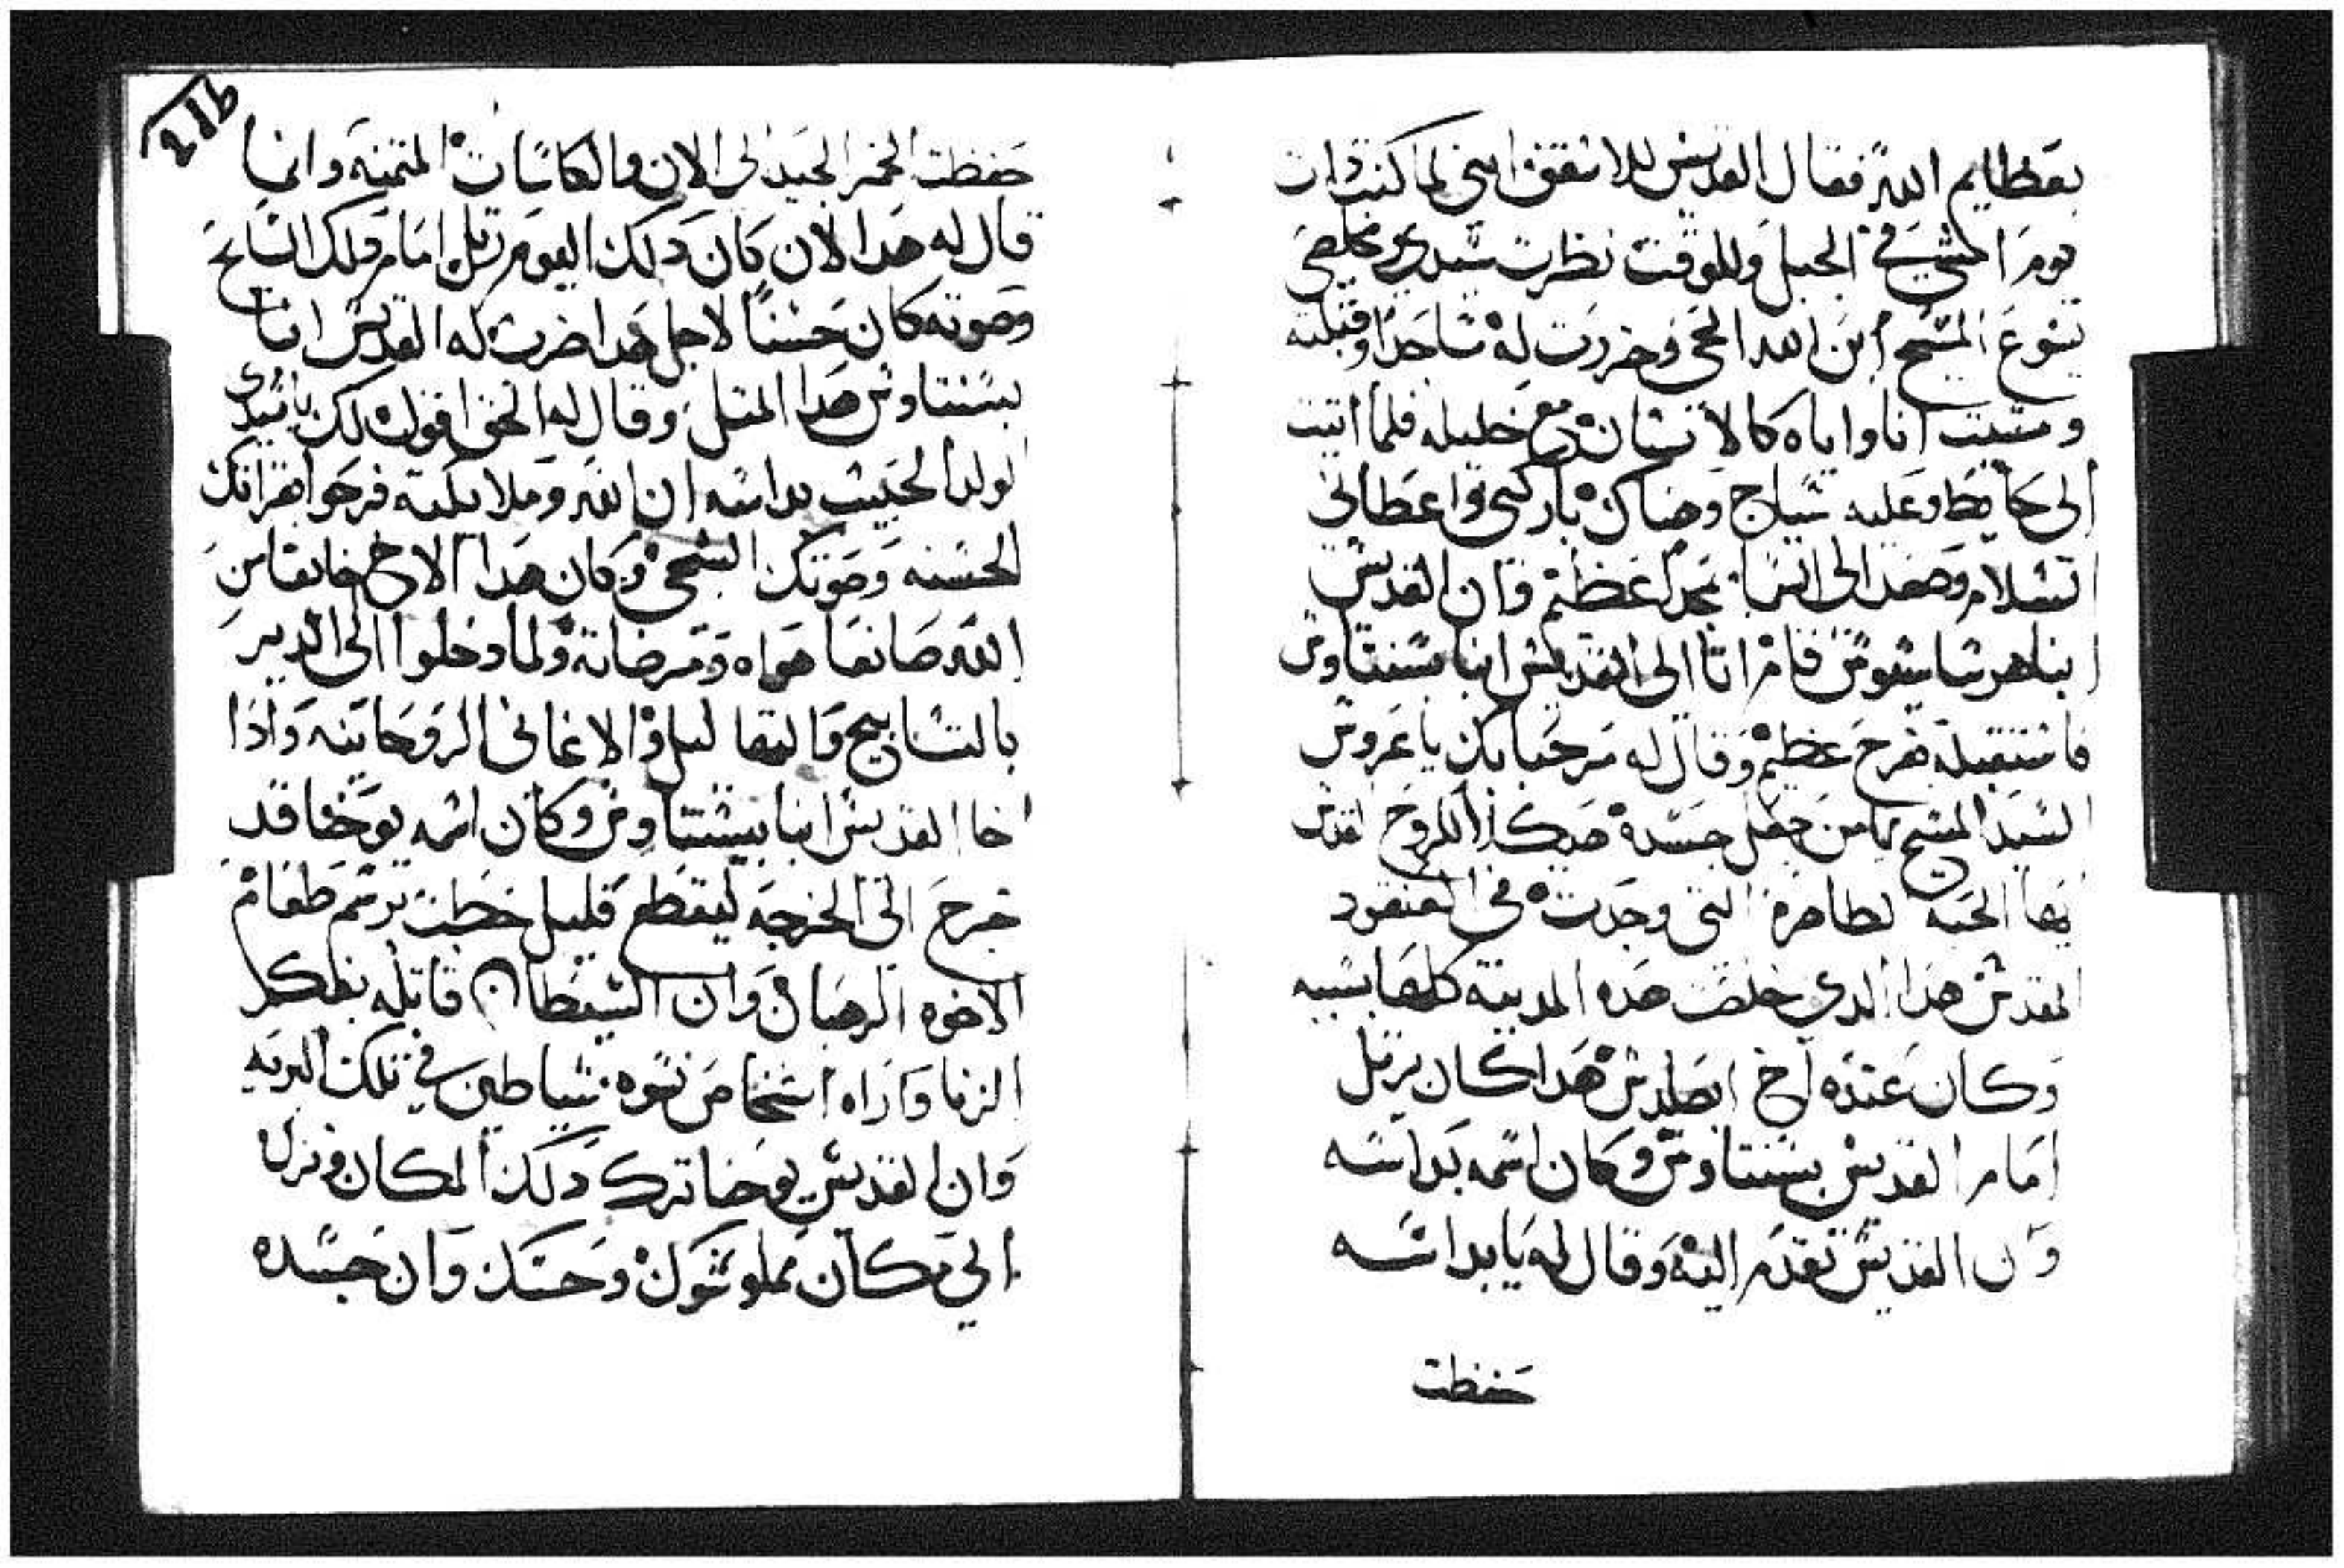 بعظايم الله فقال القديس للاسقف انني لما كنت دات
يوم امشي في الجبل وللوقت نظرت سيدي مخلصي
يسوع المسيح ابن الله الحي وخررت له ساجدا وقبلته
ومشيت انا واياه كالانسان مع خليله فلما اتيت
الى حايط وعليه سياج وهناك باركني واعطاني
السلام وصعد الى السما بمجدا عظيم وان القديس
ابناهرشاسيوس قام اتا الى القديس انبا بسنتاوس
فاستقبله بفرح عظيم وقال له مرحبا بك يا عروس
السيد المسيح يامن جعل جسده هيكلا للروح القدس
ايها الحبه الطاهرة التي وجدت في العنقود
المقدس هدا الدي خلصت هده المدينه كلها بسببه
وكان عنده اخ ابصلدس هدا كان يرتل
امام القديس بسنتاوس وكان اسمه بداسه
وان القديس تقدم اليه وقال له يا بداسه
حفظت
216
حفظت الخمر الجيد الى الان والكاسات المتمنه وانبا
قال له هدا لان كان دلك اليوم رتل امام فلك السايح
وصوته كان حسنا لاجل هدا ضرب له القديس انبا
بسنتاوس هدا المتل وقال له الحق اقول لك يا سيدي
الولد الحبيب بداسه ان الله وملايكته فرحوا بقراتك
الحسنه وصوتك الشجي وكان هدا الاخ خايفا من
الله صانعا هواه ومرضاته ولما دخلوا الى الدير
بالتسابيح والتهاليل والاغاني الروحانيه واذا
اخا القديس انبا بيسنتاوس وكان اسمه يوحنا قد
خرج الى الخرجه ليقطع قليل حطب برسم طعام
الاخوه الرهبان وان الشيطان قاتله بفكر
الزنا واراه اشخاص نسوه شياطين في تلك البريه
وان القديس يوحنا ترك دلك المكان ونزل
الى مكان مملو شوك وحسك وان جسده